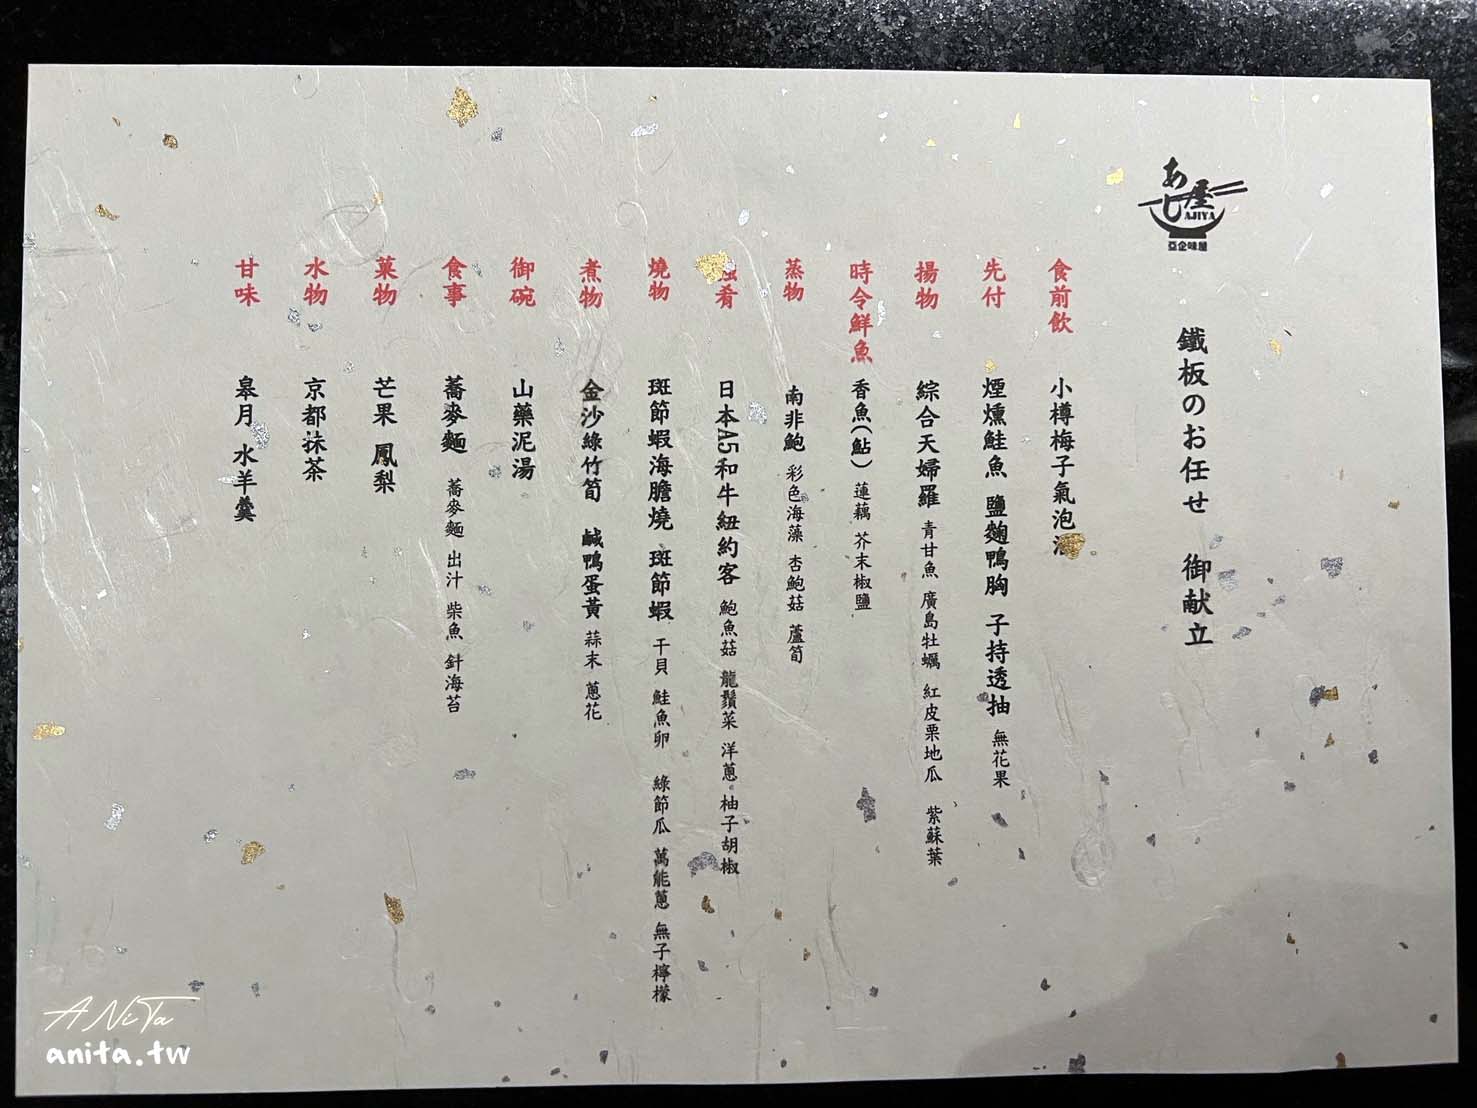 あじ屋
AJIYA
亞企味屋
鐵板のお任せ 御献立
食前飲 小樽梅子氣泡
先付 煙燻鮭魚 鹽麴鴨胸 子持透抽 無花果
揚物 綜合天婦羅 青甘魚 廣島牡蠣 紅皮栗地瓜 紫蘇葉
時令鮮魚 香魚(鮎) 蓮藕 芥末椒鹽
蒸物 南非鮑 彩色海藻 杏鮑菇 蘆筍
肴 日本A5和牛紐約客 鮑魚菇 龍鬚菜 洋蔥 柚子胡椒
燒物 斑節蝦海膽燒 斑節蝦 干貝 鮭魚卵 綠節瓜 萬能蔥 無子檸檬
煮物 金沙綠竹筍 鹹鴨蛋黃 蒜末 蔥花
御碗 山藥泥湯
食事 蕎麥麵 蕎麥麵 出汁 柴魚 針海苔
菓物 芒果 鳳梨
水物 京都抹茶
甘味 皋月 水羊羹
ANiTa
anita.tw